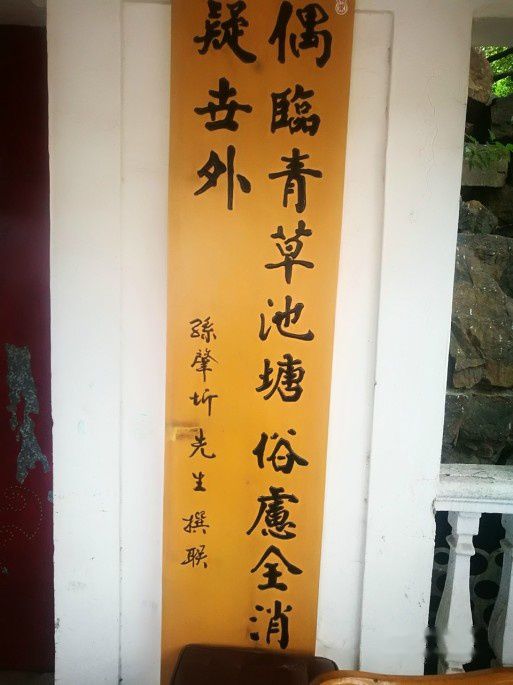 偶臨青草池塘俗慮全消
疑世外
孫肇圻先生撰联